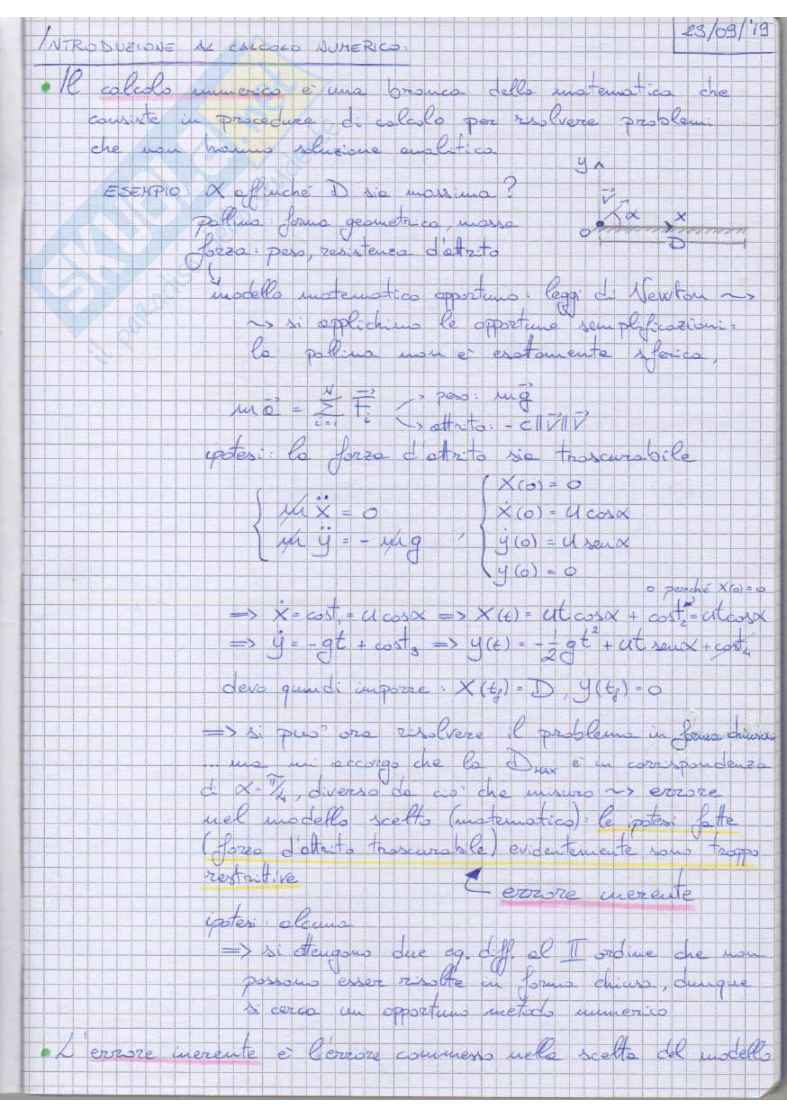 23/09/'19
INTRODUZIONE AL CALCOLO NUMERICO:
• Il calcolo numerico è una branca della matematica che
consiste in procedure di calcolo per risolvere problemi
che non hanno soluzione analitica
ESEMPIO: α affinché D sia massima?
pallina forma geometrica, massa
forza: peso, resistenza d'attrito
y
V⃗ α x
O D
modello matematico opportuno: leggi di Newton ~>
~> si applichino le opportune semplificazioni:
la pallina non è esattamente sferica,
m a⃗ = Σ_{i=1}^{N} F⃗_i → peso: m g⃗
→ attrito: -c‖V⃗‖V⃗
ipotesi: la forza d'attrito sia trascurabile
{ m ẍ = 0
m ÿ = - m g ,
{ x(0) = 0
ẋ(0) = U cosα
ẏ(0) = U senα
y(0) = 0
0 perché x(0)=0
=> ẋ = cost₁ = U cosα => x(t) = Ut cosα + cost₂ = Ut cosα
=> ẏ = -gt + cost₃ => y(t) = -1/2 gt² + Ut senα + cost₄
devo quindi imporre: x(t_f) = D, y(t_f) = 0
=> si può ora risolvere il problema in forma chiusa
... ma mi accorgo che la D_MAX è in corrispondenza
di α = π/4, diverso da ciò che misuro ~> errore
nel modello scelto (matematico): le potesi fatte
(forza d'attrito trascurabile) evidentemente sono troppo
restrittive
errore inerente
ipotesi: alcuna
=> si ottengono due eq. diff. al II ordine che non
possono esser risolte in forma chiusa, dunque
si cerca un opportuno metodo numerico
• L'errore inerente è l'errore commesso nella scelta del modello
SKUOLA.net